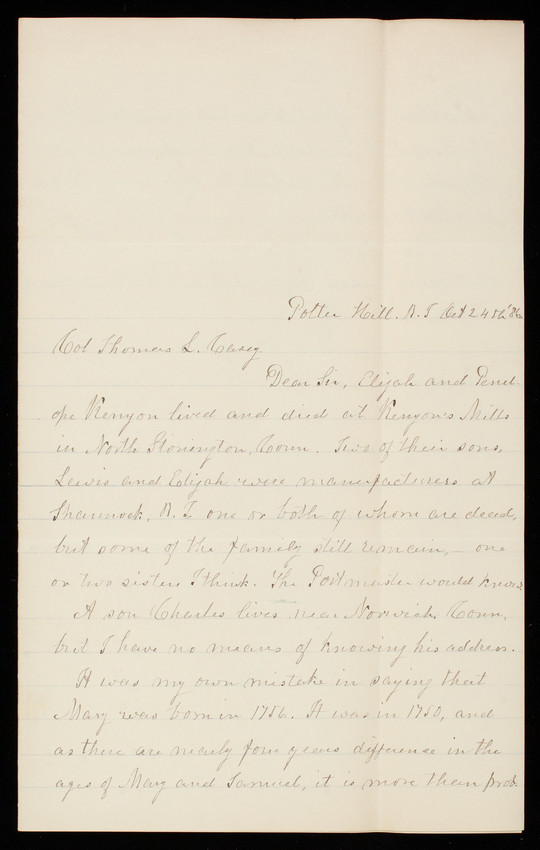 Potter Hill. R. I Oct 24th '86
Col Thomas L. Casey
Dear Sir, Elijah and Penel-
ope Kenyon lived and died at Kenyon's Mills
in North Stonington, Conn. Two of their sons,
Lewis and Elijah were manufacturers at
Shannock, R. I. one or both of whom are dead,
but some of the family still remain, — one
or two sisters I think. The Postmaster would know.
A son Charles lives near Norwich, Conn,
but I have no means of knowing his address.
It was my own mistake in saying that
Mary was born in 1756. It was in 1750, and
as there are nearly four years difference in the
ages of Mary and Samuel, it is more than prob-